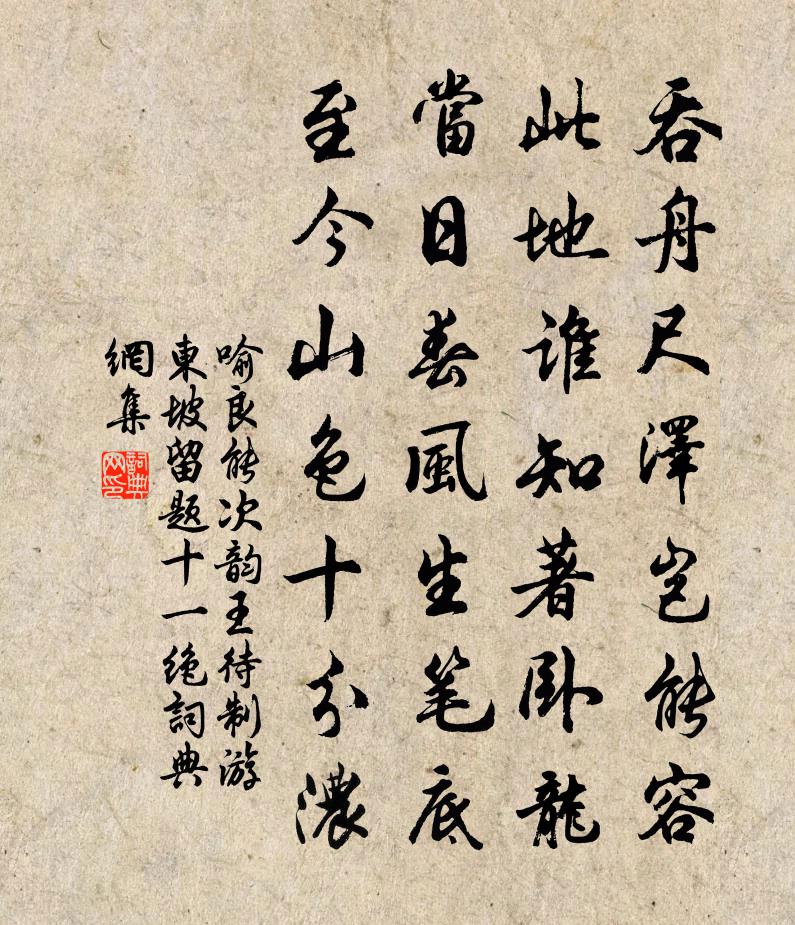 吞舟尺澤岂能容
此地谁知著卧龍
當日春風生笔底
至今山色十分濃
喻良能次韵王待制游
東坡留题十一绝詞典
網集
詞典
网印